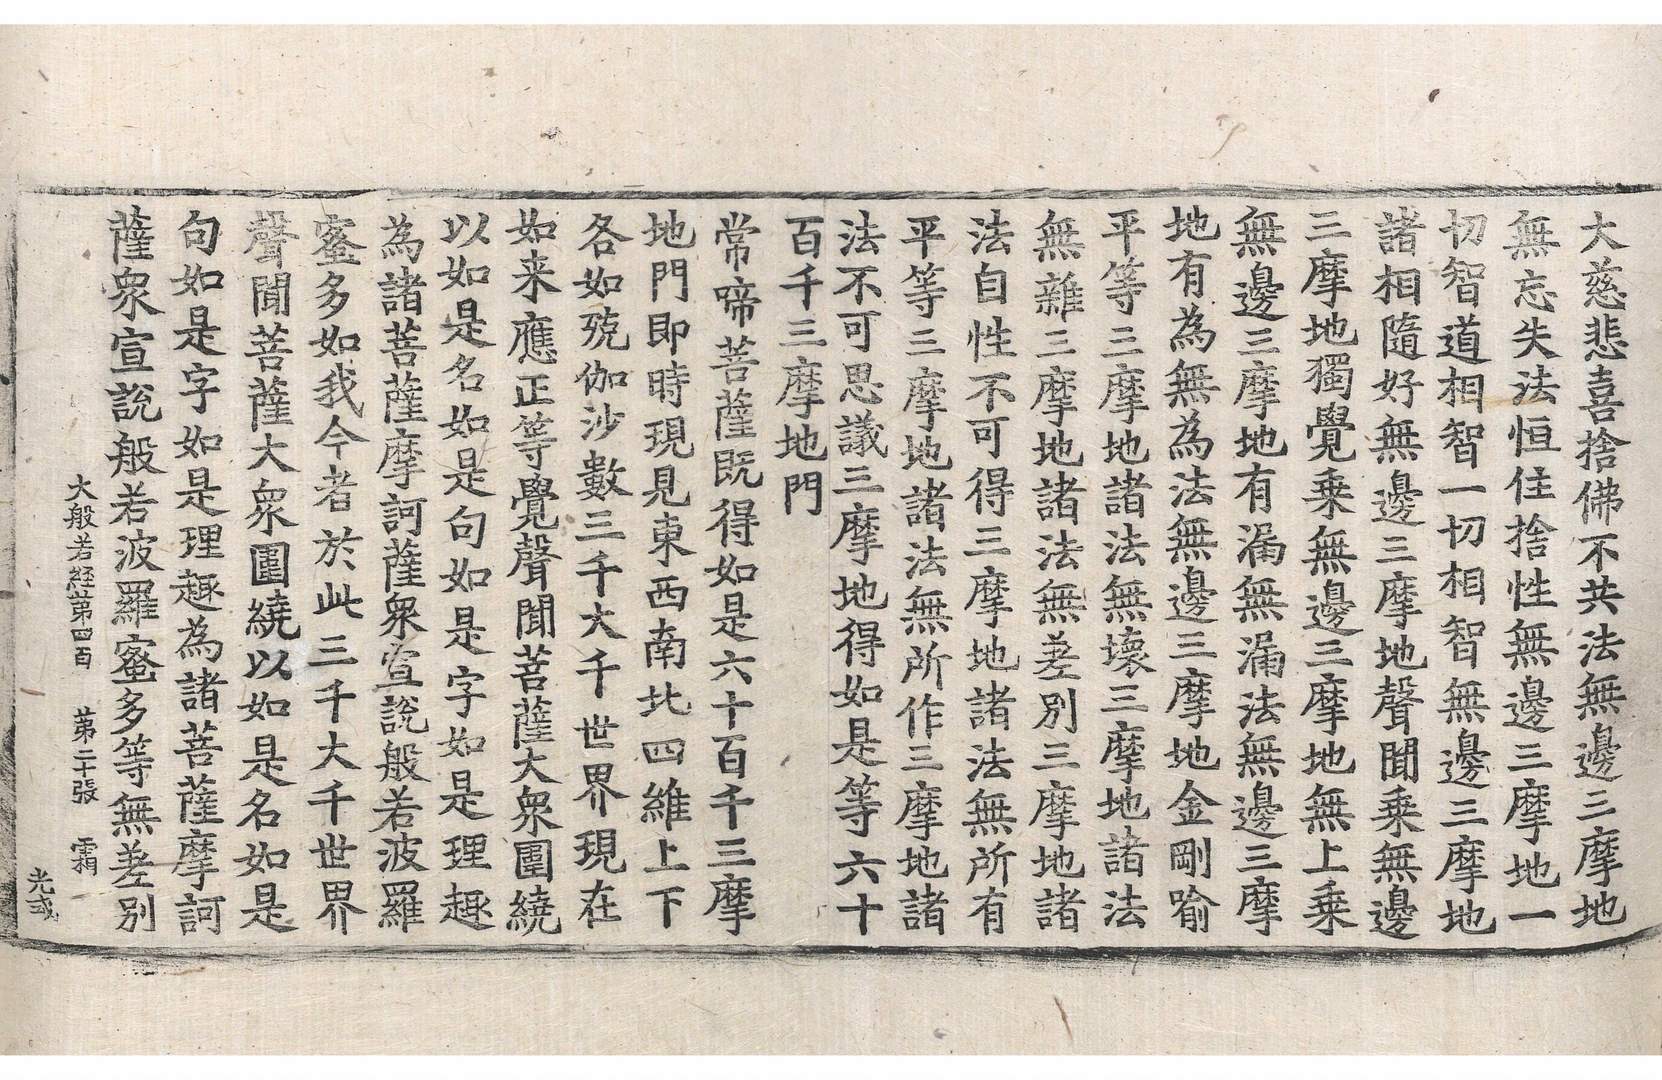 大慈悲喜捨佛不共法無邊三摩地
無忘失法恒住捨性無邊三摩地一
切智道相智一切相智無邊三摩地
諸相隨好無邊三摩地聲聞乗無邊
三摩地獨覺乗無邊三摩地無上乗
無邊三摩地有漏無漏法無邊三摩
地有為無為法無邊三摩地金剛喻
平等三摩地諸法無壞三摩地諸法
無雜三摩地諸法無差別三摩地諸
法自性不可得三摩地諸法無所有
平等三摩地諸法無所作三摩地諸
法不可思議三摩地得如是等六十
百千三摩地門
常啼菩薩既得如是六十百千三摩
地門即時現見東西南北四維上下
各如殑伽沙數三千大千世界現在
如来應正等覺聲聞菩薩大衆圍繞
以如是名如是句如是字如是理趣
為諸菩薩摩訶薩衆宣說般若波羅
蜜多如我今者於此三千大千世界
聲聞菩薩大衆圍繞以如是名如是
句如是字如是理趣為諸菩薩摩訶
薩衆宣說般若波羅蜜多等無差別
大般若経第四百 第二十張 霜
光戎